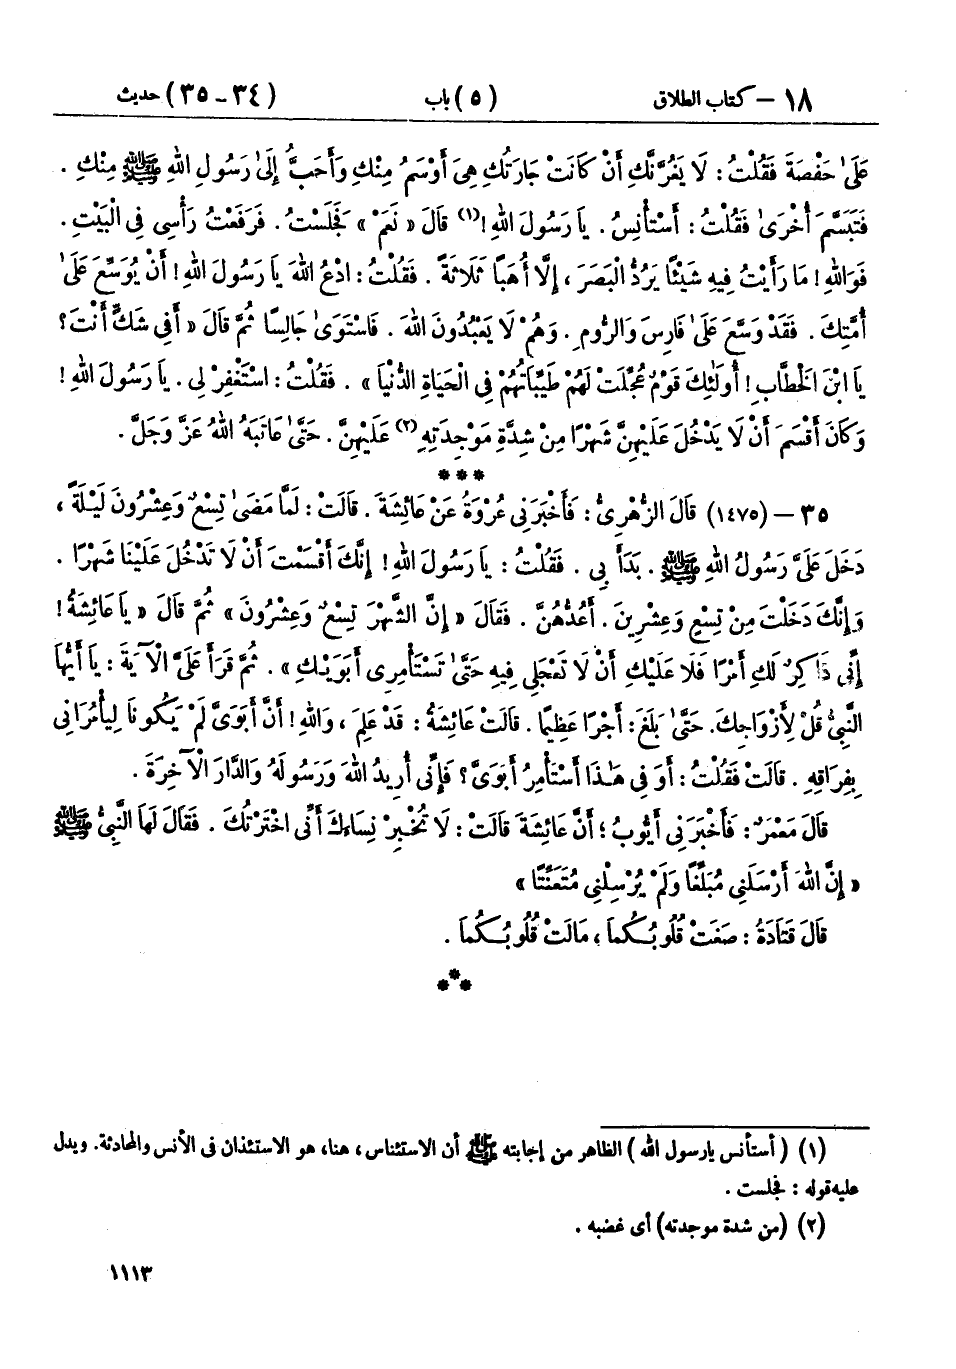 ١٨ - كتاب الطلاق (٥) باب (٣٤ - ٣٥) حديث
عَلَىٰ حَفْصَةَ فَقُلْتُ : لَا يَغُرَّنَّكِ أَنْ كَانَتْ جَارَتُكِ هِيَ أَوْسَمُ مِنْكِ وَأَحَبُّ إِلَىٰ رَسُولِ اللهِ ﷺ مِنْكِ .
فَتَبَسَّمَ أُخْرَىٰ فَقُلْتُ : أَسْتَأْنِسُ . يَا رَسُولَ اللهِ !(١) قَالَ « نَعَمْ » فَجَلَسْتُ . فَرَفَعْتُ رَأْسِي فِي الْبَيْتِ .
فَوَاللهِ ! مَا رَأَيْتُ فِيهِ شَيْئًا يَرُدُّ الْبَصَرَ ، إِلَّا أُهَبًا ثَلَاثَةً . فَقُلْتُ : ادْعُ اللهَ يَا رَسُولَ اللهِ ! أَنْ يُوَسِّعَ عَلَىٰ
أُمَّتِكَ . فَقَدْ وَسَّعَ عَلَىٰ فَارِسَ وَالرُّومِ . وَهُمْ لَا يَعْبُدُونَ اللهَ . فَاسْتَوَىٰ جَالِسًا ثُمَّ قَالَ « أَفِي شَكٍّ أَنْتَ ؟
يَا ابْنَ الْخَطَّابِ ! أُولَٰئِكَ قَوْمٌ عُجِّلَتْ لَهُمْ طَيِّبَاتُهُمْ فِي الْحَيَاةِ الدُّنْيَا » . فَقُلْتُ : اسْتَغْفِرْ لِي . يَا رَسُولَ اللهِ !
وَكَانَ أَقْسَمَ أَنْ لَا يَدْخُلَ عَلَيْهِنَّ شَهْرًا مِنْ شِدَّةِ مَوْجِدَتِهِ(٢) عَلَيْهِنَّ . حَتَّىٰ عَاتَبَهُ اللهُ عَزَّ وَجَلَّ .
* * *
٣٥ - (١٤٧٥) قَالَ الزُّهْرِيُّ : فَأَخْبَرَنِي عُرْوَةُ عَنْ عَائِشَةَ . قَالَتْ : لَمَّا مَضَىٰ تِسْعٌ وَعِشْرُونَ لَيْلَةً ،
دَخَلَ عَلَيَّ رَسُولُ اللهِ ﷺ . بَدَأَ بِي . فَقُلْتُ : يَا رَسُولَ اللهِ ! إِنَّكَ أَقْسَمْتَ أَنْ لَا تَدْخُلَ عَلَيْنَا شَهْرًا .
وَإِنَّكَ دَخَلْتَ مِنْ تِسْعٍ وَعِشْرِينَ . أَعُدُّهُنَّ . فَقَالَ « إِنَّ الشَّهْرَ تِسْعٌ وَعِشْرُونَ » ثُمَّ قَالَ « يَا عَائِشَةُ !
إِنِّي ذَاكِرٌ لَكِ أَمْرًا فَلَا عَلَيْكِ أَنْ لَا تَعْجَلِي فِيهِ حَتَّىٰ تَسْتَأْمِرِي أَبَوَيْكِ » . ثُمَّ قَرَأَ عَلَيَّ الْآيَةَ : يَا أَيُّهَا
النَّبِيُّ قُلْ لِأَزْوَاجِكَ. حَتَّىٰ بَلَغَ : أَجْرًا عَظِيمًا . قَالَتْ عَائِشَةُ : قَدْ عَلِمَ ، وَاللهِ ! أَنَّ أَبَوَيَّ لَمْ يَكُونَا لِيَأْمُرَانِي
بِفِرَاقِهِ . قَالَتْ فَقُلْتُ : أَوَ فِي هَٰذَا أَسْتَأْمِرُ أَبَوَيَّ ؟ فَإِنِّي أُرِيدُ اللهَ وَرَسُولَهُ وَالدَّارَ الْآخِرَةَ .
قَالَ مَعْمَرٌ : فَأَخْبَرَنِي أَيُّوبُ ؛ أَنَّ عَائِشَةَ قَالَتْ : لَا تُخْبِرْ نِسَاءَكَ أَنِّي اخْتَرْتُكَ . فَقَالَ لَهَا النَّبِيُّ ﷺ
« إِنَّ اللهَ أَرْسَلَنِي مُبَلِّغًا وَلَمْ يُرْسِلْنِي مُتَعَنِّتًا »
قَالَ قَتَادَةُ : صَغَتْ قُلُوبُكُمَا ، مَالَتْ قُلُوبُكُمَا .
* * *
(١) (أستأنس يا رسول الله) الظاهر من إجابته ﷺ أن الاستئناس ، هنا، هو الاستئذان فى الأنس والمحادثة. ويدل
عليه قوله : فجلست .
(٢) (من شدة موجدته) أى غضبه .
١١١٣